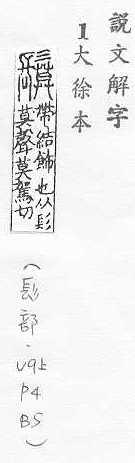 說文解字
1大徐本
帶結飾也从髟
莫聲莫駕切
(髟部．U9上 P4 B5)